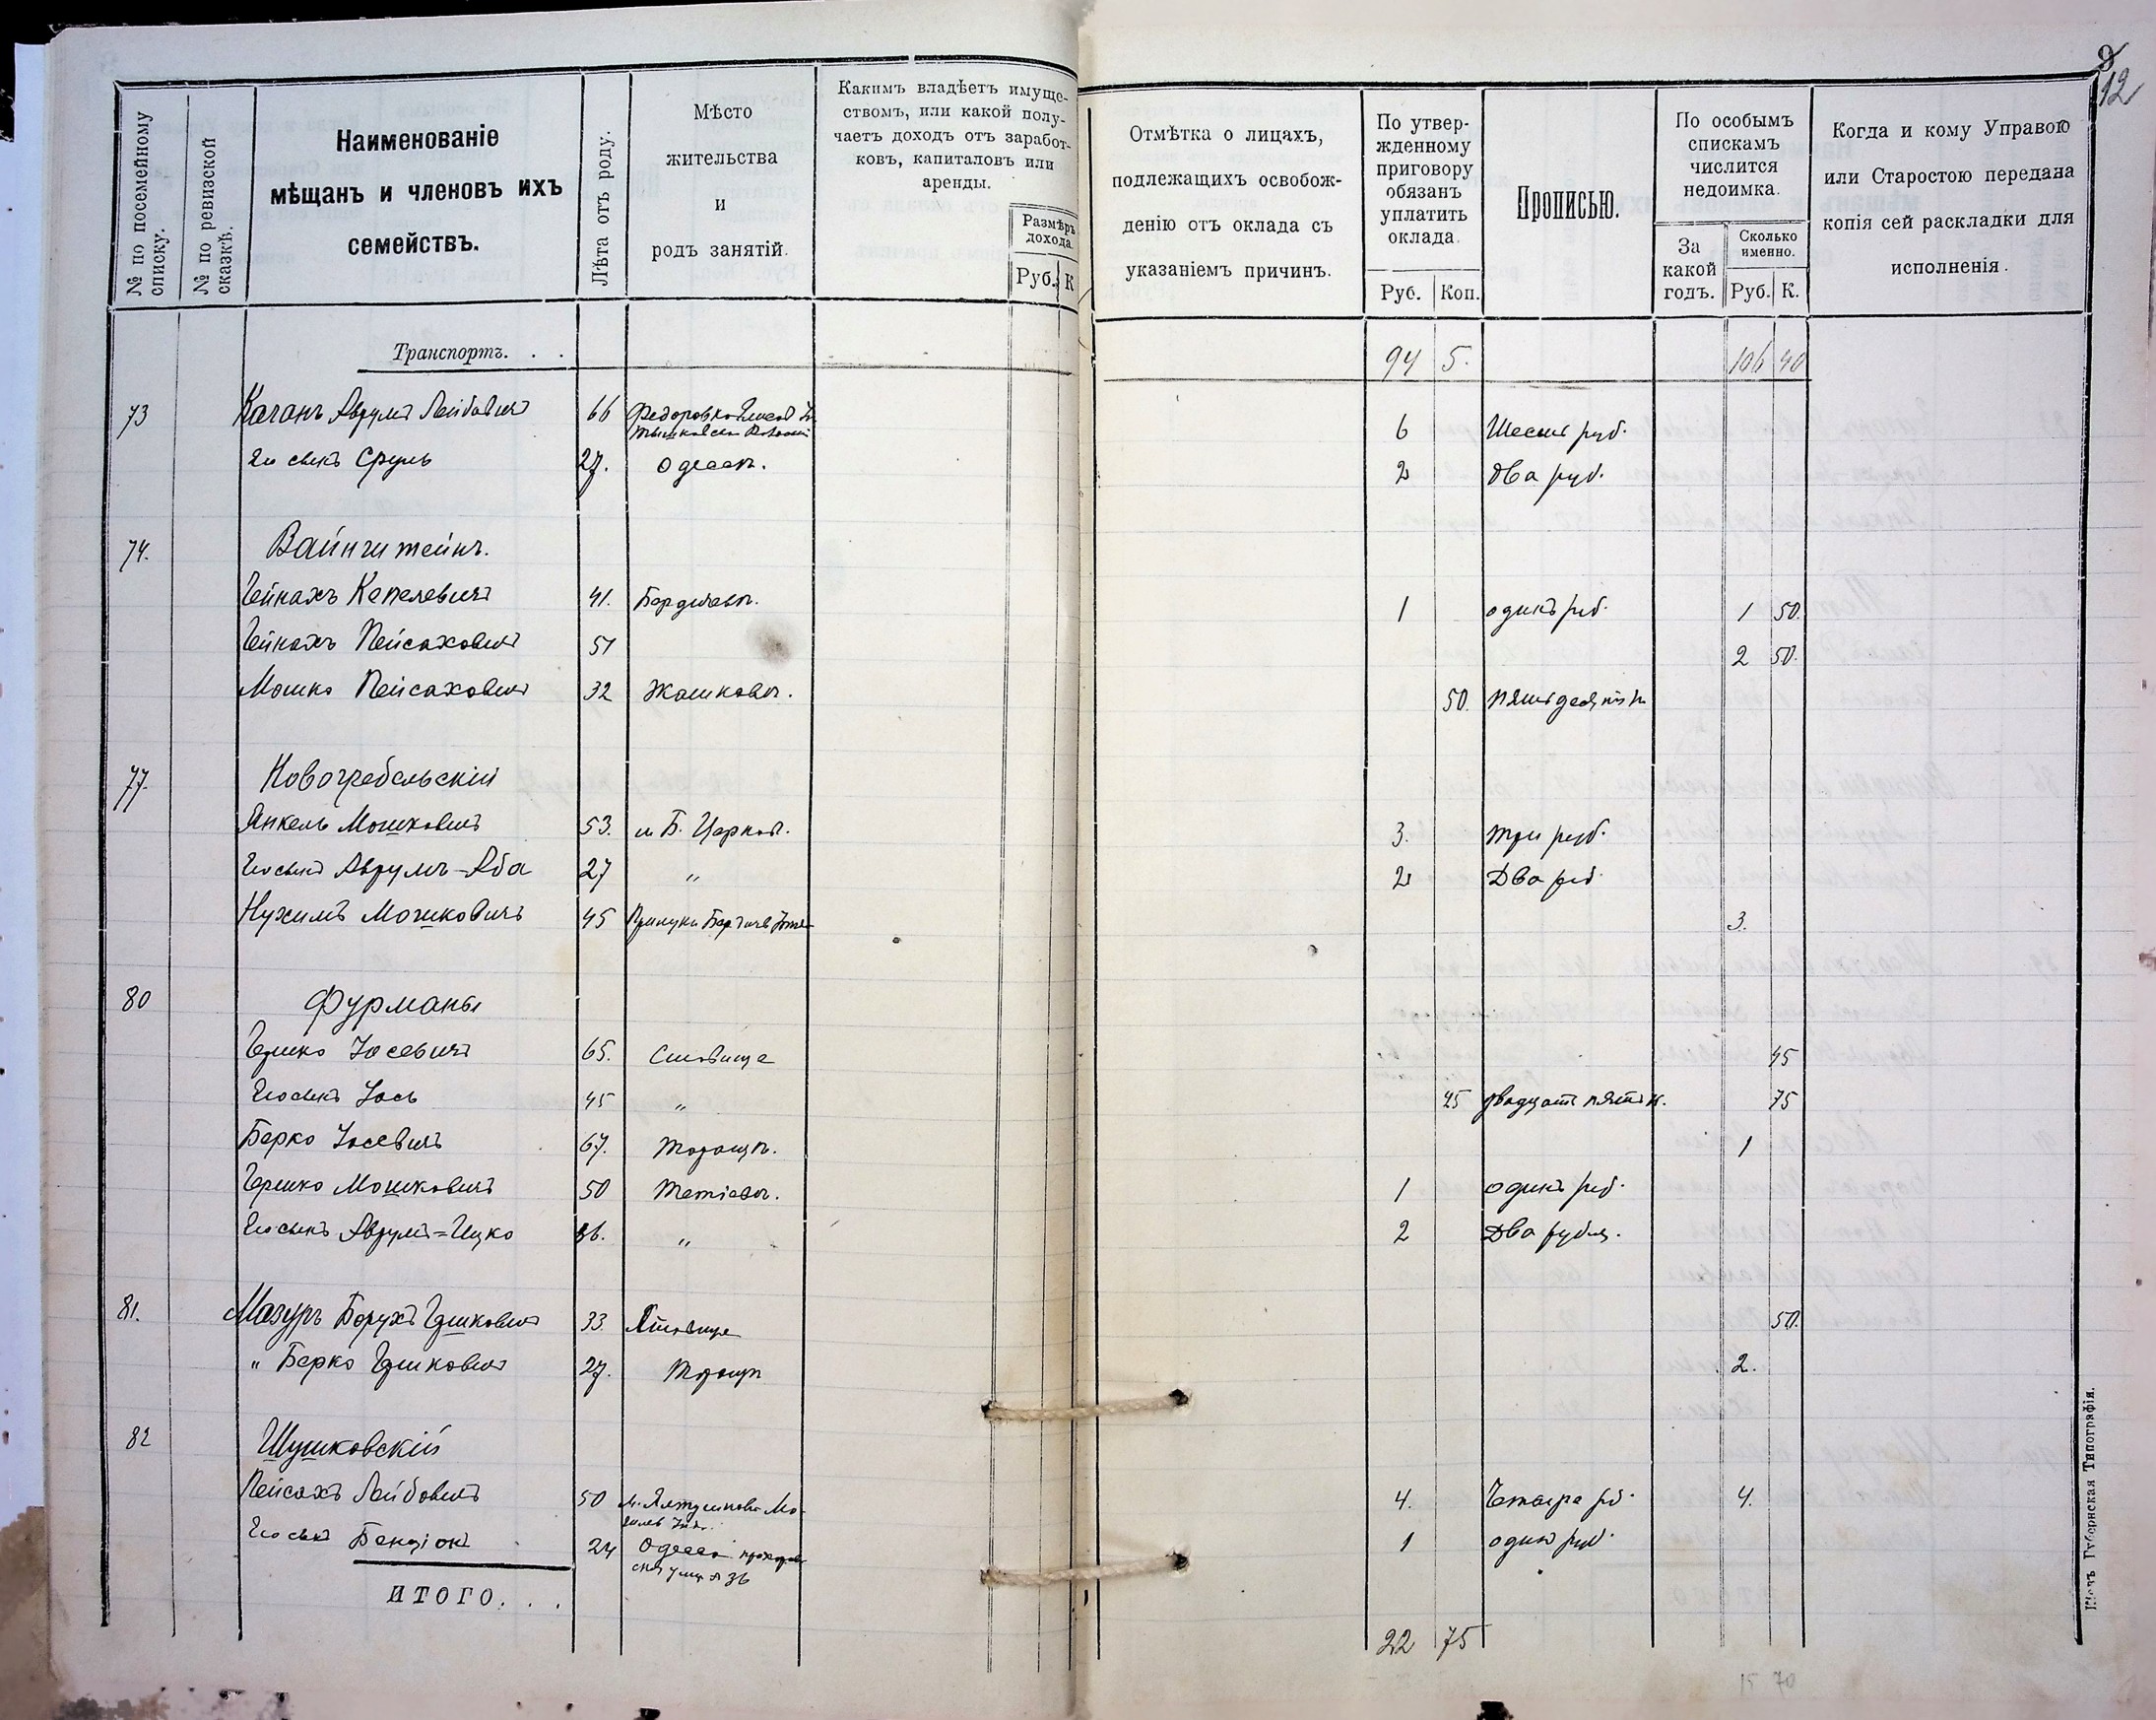 9
12
№ по посемейному списку.
№ по ревизской сказкѣ.
Наименованіе
мѣщанъ и членовъ ихъ
семействъ.
Лѣта отъ роду.
Мѣсто
жительства
и
родъ занятій.
Какимъ владѣетъ имуще-
ствомъ, или какой полу-
чаетъ доходъ отъ заработ-
ковъ, капиталовъ или
аренды.
Размѣръ
дохода.
Руб. К
Отмѣтка о лицахъ,
подлежащихъ освобож-
денію отъ оклада съ
указаніемъ причинъ.
По утвер-
жденному
приговору
обязанъ
уплатить
оклада.
Руб. Коп.
Прописью.
По особымъ
спискамъ
числится
недоимка.
За
какой
годъ.
Сколько
именно.
Руб. К.
Когда и кому Управою
или Старостою передана
копія сей раскладки для
исполненія.
Транспортъ. . . 94 5. 106 40
73 Каганъ Аврумъ Лейбовичъ 66 Федоровка 6 Шесть руб.
Его сынъ Сруль 27. Одесса. 2 Два руб.
74. Вайнштейнъ.
Гейнахъ Кепелевичъ 41. Бердичевъ. 1 одинъ руб. 1 50.
Гейнахъ Пейсаховичъ 51 2 50.
Мошко Пейсаховичъ 32 Жашковъ. 50. пятьдесятъ к
77. Новогребельскій
Янкель Мошковичъ 53. м Б. Церковь. 3. три руб.
Его сынъ Аврумъ-Аба 27 " 2 Два руб.
Нухимъ Мошковичъ 45 3.
80 Фурманы
Гершко Іосевичъ 65. Ставище 45
Его сынъ Іось 45 " 25 двадцать пять к. 75
Берко Іосевичъ 67. Таращ. 1
Гершко Мошковичъ 50 Тетіевъ. 1 одинъ руб.
Его сынъ Аврумъ=Ицко 36. " 2 Два рубля.
81. Мазуръ Борухъ Гершковичъ 33. Ставище 50.
" Берко Гершковичъ 27. Таращ 2.
82 Шушковскій
Пейсахъ Лейбовичъ 50 м. Ялтушковъ Мо-
гилев. 4. Четыре руб. 4.
Его сынъ Бенціонъ 24 Одесса Прохоров-
ская улиц № 36 1 одинъ руб.
ИТОГО. . . 22 75
15 70
Кіевъ Губернская Типографія.